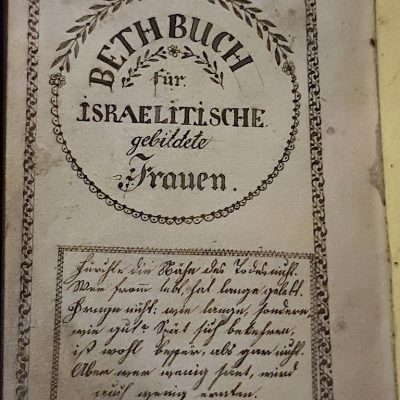 BETHBUCH
für
ISRAELITISCHE
gebildete
Frauen.
Fürchte die Nähe des Todes nicht.
Wer from̅ lebt, hat lange gelebt.
Frage nicht: wie lange, sondern
wie gut? Spät sich bekehren,
ist wohl beßer, als gar nicht.
Aber wer wenig säet, wird
auch wenig ernten.